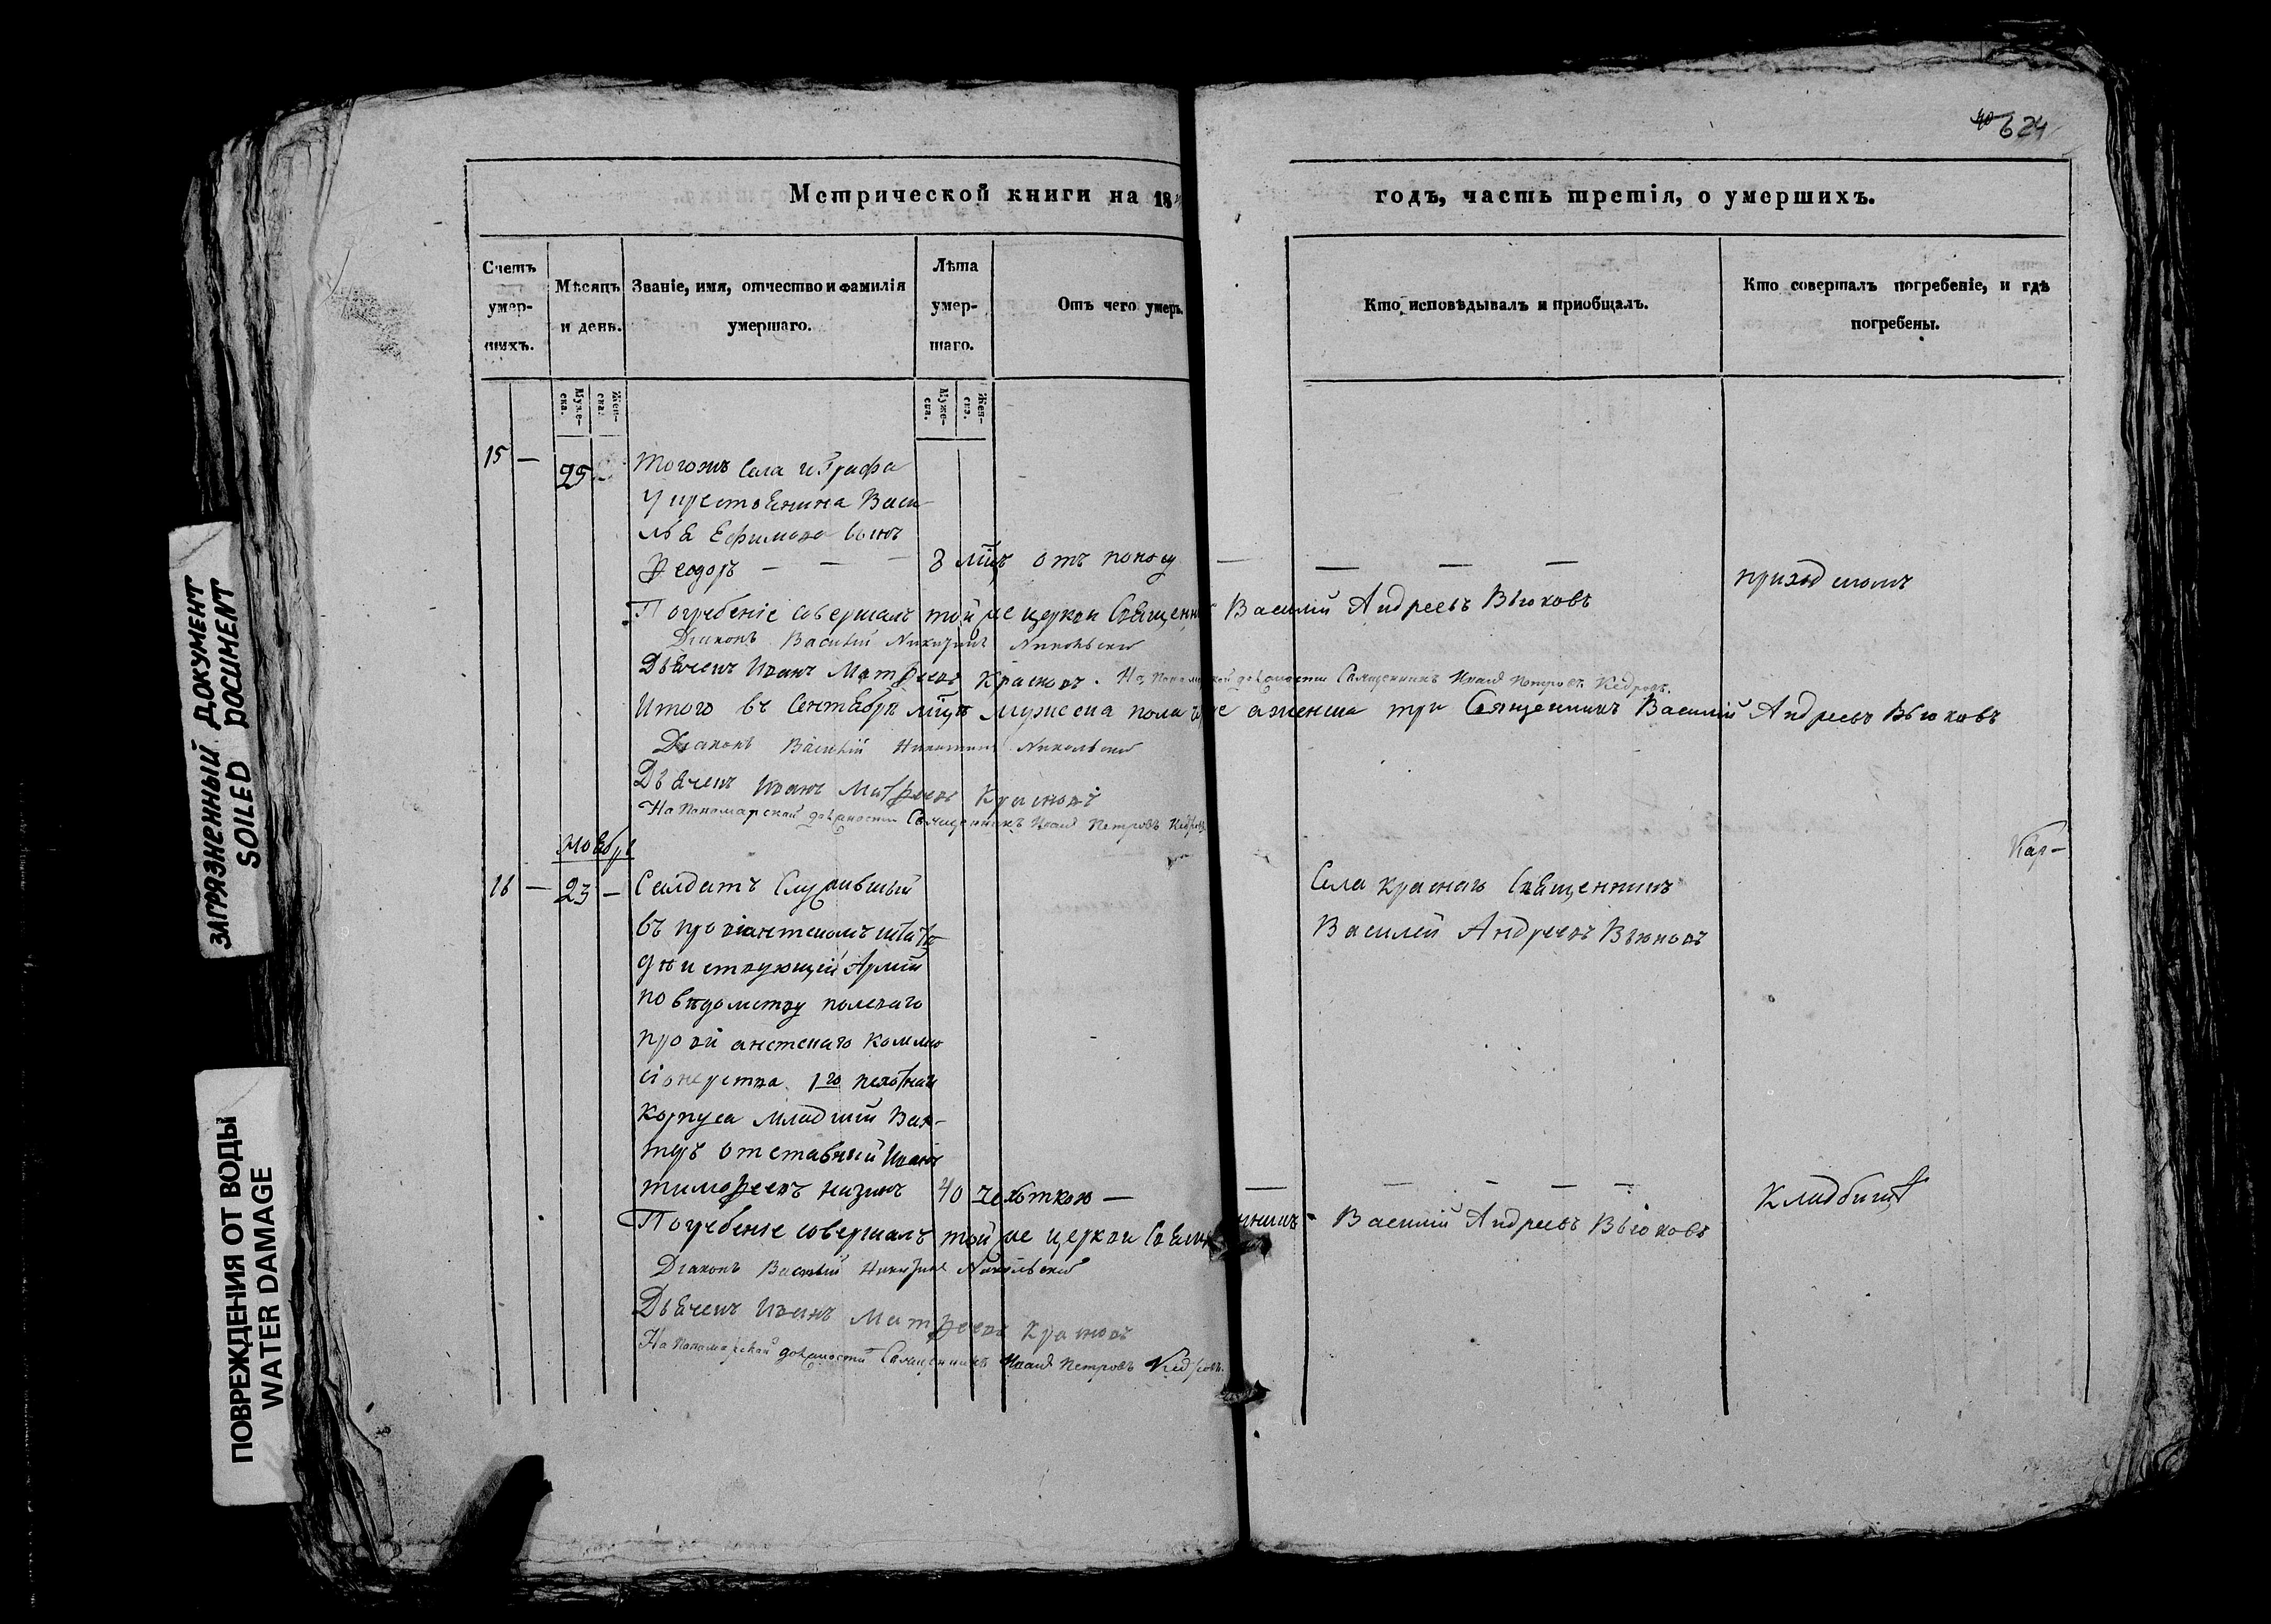 624
Метрической книги на 18
годъ, часть третія, о умершихъ.
Счетъ умер-шихъ.
Мѣсяцъ и день.
Званіе, имя, отчество и фамилія умершаго.
Лѣта умер-шаго.
Отъ чего умеръ.
Кто исповѣдывалъ и приобщалъ.
Кто совершалъ погребеніе, и гдѣ погребены.
Муже-ска.
Жен-ска.
Муже-ска.
Жен-ска.
15 — 25
Тогожъ Села и Графа
крестьянина Васи-
лья Ефимова сынъ
Феодоръ — — — 8 мцъ отъ поносу — — — —
приходскомъ
Погребеніе совершалъ той же церкви Священникъ Василій Андреевъ Вьюковъ
Діаконъ Василій Никитинъ Никольскій
Дьячекъ Иванъ Матфеевъ Красновъ. На Пономарской должности Священникъ Иванъ Петровъ Кедровъ.
Итого въ Сентябрѣ мцѣ мужеска пола а женска три Священникъ Василій Андреевъ Вьюковъ
Діаконъ Василій Никитинъ Никольскій
Дьячекъ Иванъ Матфеевъ Красновъ
На Пономарской должности Священникъ Иванъ Петровъ Кедровъ
Ноябрь
16 — 23 —
Солдатъ Служившый
въ провіантскомъ штатѣ
дѣйствующей Арміи
по вѣдомству полеваго
провіантскаго Коммис
сіонерства 1го пехотнаго
Корпуса младшій Вах-
теръ отставный Иванъ
Тимофеевъ 40 чехоткою — — — — — —
Села Краснаго Священникъ
Василей Андреевъ Вьюковъ
Кладбищѣ
Погребеніе совершалъ той же церкви Священникъ Василій Андреевъ Вьюковъ
Діаконъ Василій Никитинъ Никольскій
Дьячекъ Иванъ Матфеевъ Красновъ
На Пономарской должности Священникъ Иванъ Петровъ Кедровъ.
ЗАГРЯЗНЕННЫЙ ДОКУМЕНТ
SOILED DOCUMENT
ПОВРЕЖДЕНИЯ ОТ ВОДЫ
WATER DAMAGE